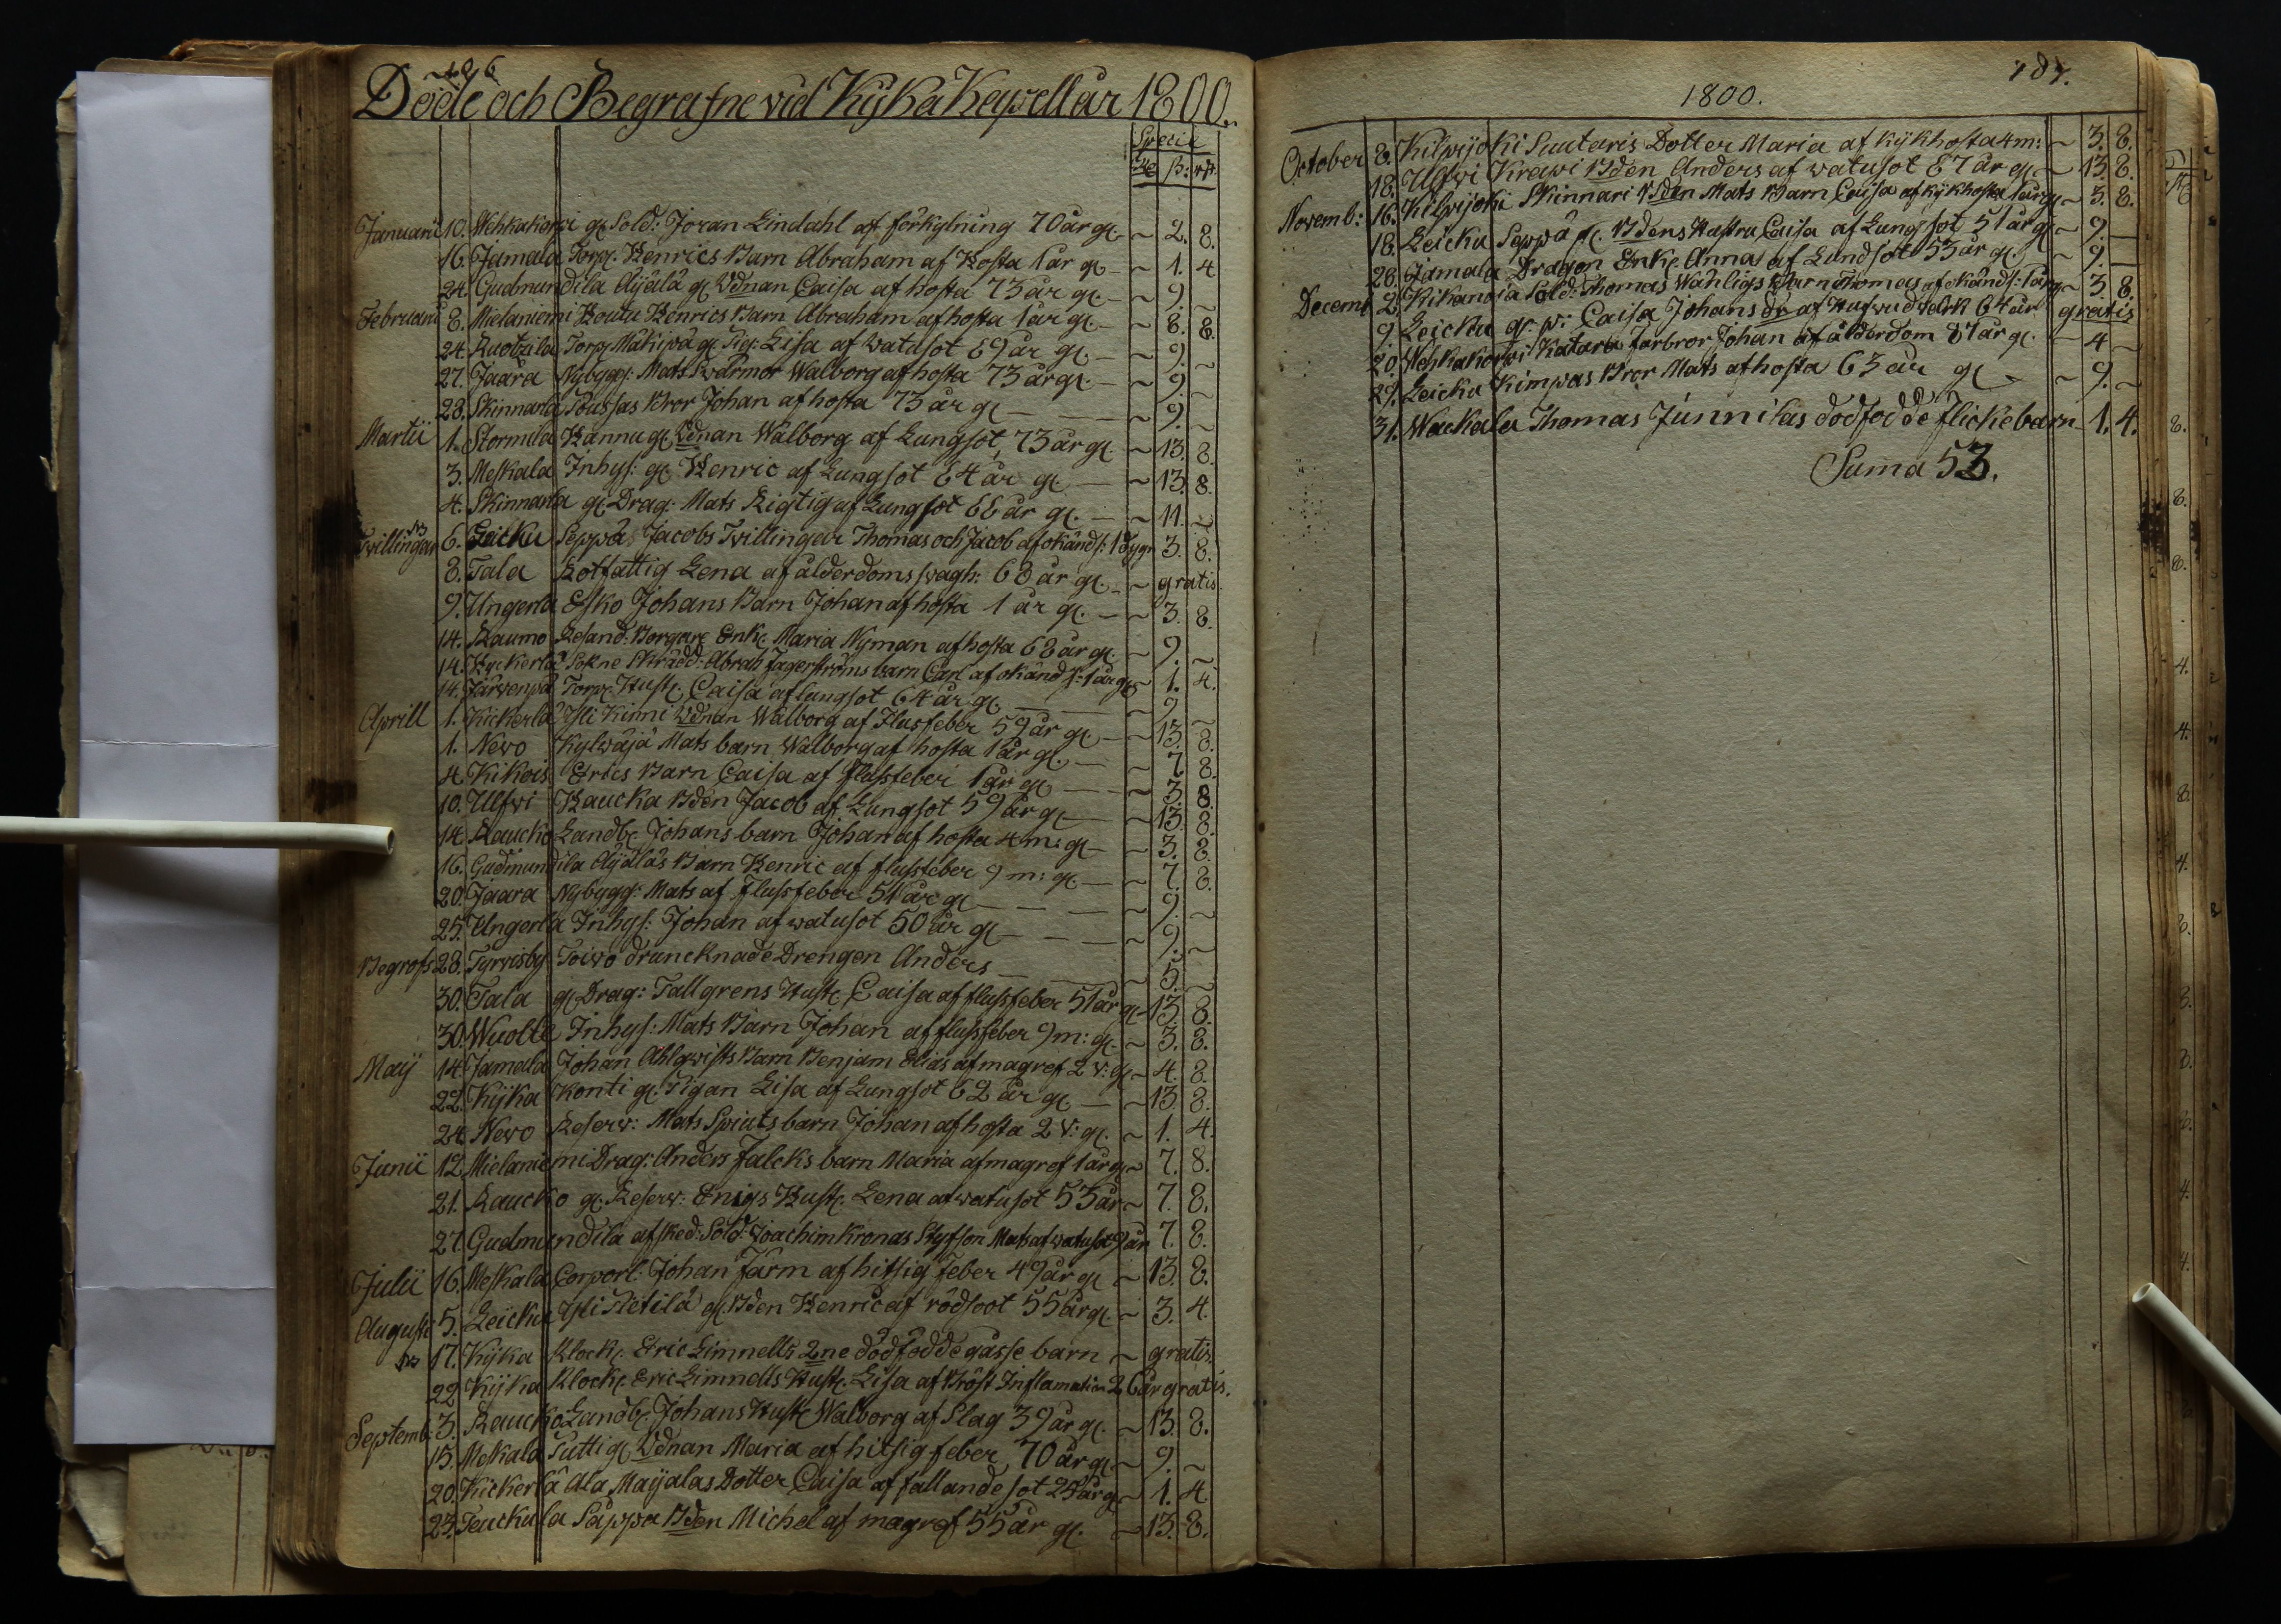 186
Döde och Begrafne vid Kijka Kapell år 1800.
Specie
Rd. ß: rst.
Januarii 10. Mehkakorpi gl. Sold: Joran Lindahl af förkylning 70 år gl. ~ 2. 8.
16. Jamala Torp. Henrics Barn Abraham af Hosta 1 år gl. ~ 1. 4
24. Gudmundila Äijälä gl. Wdnan Caisa af hosta 73 år gl. ~ 9. ~
Februarii 8. Mielaniemi Koutu Henrics Barn Abraham af hosta 1 år gl. ~ 8. 8.
24. Ruotzila Torp. Mäkipä gl. Pig: Lisa af Watusot 89 år gl. ~ 9. ~
27. Jaara Nybygg: Mats Swärmor Walborg af hosta 73 år gl. ~ 9. ~
28. Skinnarla Soussas Bror Johan af hosta 73 år gl. ~ 9. ~
Martii 1. Stormila Hannu gl. Wdnan Walborg af Lungsot, 73 år gl. ~ 13. 8.
3. Meskala Inhys: gl. Henric af Lungsot 64 år gl. ~ 13. 8.
4. Skinnarla gl. Drag: Mats Rigtig af Lungsot 68 år gl. ~ 11. ~
Twillingar 6. Leicku Seppäs Jacobs Twillingar Thomas och Jacob af okänd s: 1 dygn 3. 8.
8. Tala Rotfattig Lena af ålderdoms swagh: 68 år gl. ~ gratis.
9. Ungerla Esko Johans Barn Johan af hosta 1 år gl. ~ 3. 8.
14. Raumo Resand: Borgare Enk. Maria Nyman af hosta 68 år gl. ~ 9. ~
14. Kyckerlä Sokne Skrädd: Abrah Jagerströms barn Carl af okänd s: 1 år gl. ~ 1. 4.
14. Järwenpä Torp. Hust. Caisa af lungsot 64 år gl. ~ 9. ~
Aprill 1. Kickerlä Yli Kinni Wdnan Walborg af Flusfeber 59 år gl. ~ 13. 8.
1. Newo Kylwäjä Mats barn Walborg af hosta 1 år gl. ~ 7. 8.
4. Kikois Erics Barn Caisa af flussfeber 1 år gl. ~ 3. 8.
10. Ulfwi Haucka Bden Jacob af Lungsot 59 år gl. ~ 13. 8.
14. Raucko Landb. Johans barn Johan af hosta 4 m: gl. ~ 3. 8.
16. Gudmundila Äijäläs Barn Henric af flussfeber 9 m: gl. ~ 7. 8.
20. Jaara Nybygg: Mats af flussfeber 51 år gl. ~ 9. ~
25. Ungerla Inhys: Johan af watusot 50 år gl. ~ 9. ~
Begrofs 28. Tyrwisby Toiwo druncknade Drengen Anders ~ 5. ~
30. Tala gl. Drag: Tallgrens Hust. Caisa af flussfeber 51 år gl. 13. 8.
30. Wuolle Inhys: Mats Barn Johan af flussfeber 9 m: gl. ~ 3. 8.
Maij 14. Jamala Johan Ahlqwists Barn Benjam Elias af magref 2 v: gl. ~ 4. 8.
22. Kijka Konti gl. Pigan Lisa af Lungsot 62 år gl. ~ 13. 8.
24. Newo Reserw: Mats Spiuts barn Johan af hosta 2 v: gl. ~ 1. 4.
Junii 12. Mielaniemi Drag: Anders Falcks barn Maria af magref 1 år gl. ~ 7. 8.
21. Raucko gl. Reserv. Enigs Hust. Lena af watusot 53 år ~ 7. 8.
27. Gudmundila afsked: Sold: Joachim Kronas Styfson Mats af watusot 9 år 7. 8.
Julii 16. Meskala Corporl: Johan Farm af hitsig feber 49 år gl. ~ 13. 8.
Augusti 5. Leicku Yli Pietilä gl. Bden Henric af rödsoot 55 år gl. ~ 3. 4.
17. Kijka Klock. Eric Limnells 2ne dödfödde gåsse barn ~ gratis.
22. Kijka Klock. Eric Limnells Hust. Lisa af Bröst Inflamation 26 år gratis.
Septemb: 3. Raucko Landb. Johans Hust. Walborg af Slag 39 år gl. ~ 13. 8.
15. Meskala Tutti gl. Wdnan Maria af hitsig feber, 70 år gl. ~ 9. ~
20. Kickerlä Ala Maijalas Dotter Caisa af fallande sot 25 år gl. ~ 1. 4.
23. Teuckula Säppä Bden Michel af magref 55 år gl. ~ 13. 8.
187.
1800.
October 8. Kilpijoki Suutaris Dotter Maria af kijkhosta 4 m: ~ 3. 8.
18. Ulfwi Krawi Bden Anders af watusot 87 år gl. ~ 13. 8.
Novemb: 16. Kilpijoki Skinnari Bden Mats Barn Caisa af kijkhosta 1 år gl. ~ 3. 8.
18. Leicku Seppä gl. Bdens Hustru Caisa af Lungsot 51 år gl. ~ 9. —
28. Jamala Dragon Enk. Anna af Lundsot 53 år gl. ~ 9. —
Decemb 2. Kikanoja Sold: Thomas Wänligs Barn Thomas af okänd s: 1 år gl. ~ 3. 8.
9. Leicku gl. p: Caisa Johans dr af Hufwudwärk 64 år gratis
20. Mehkakorpi Katara farbror Johan af ålderdom 81 år gl. ~ 4 ~
29. Leicku Kimpas Bror Mats af hosta 63 år gl. ~ 9. ~
31. Wackala Thomas Junnilas dödfödde flickebarn 1. 4.
Suma 53.